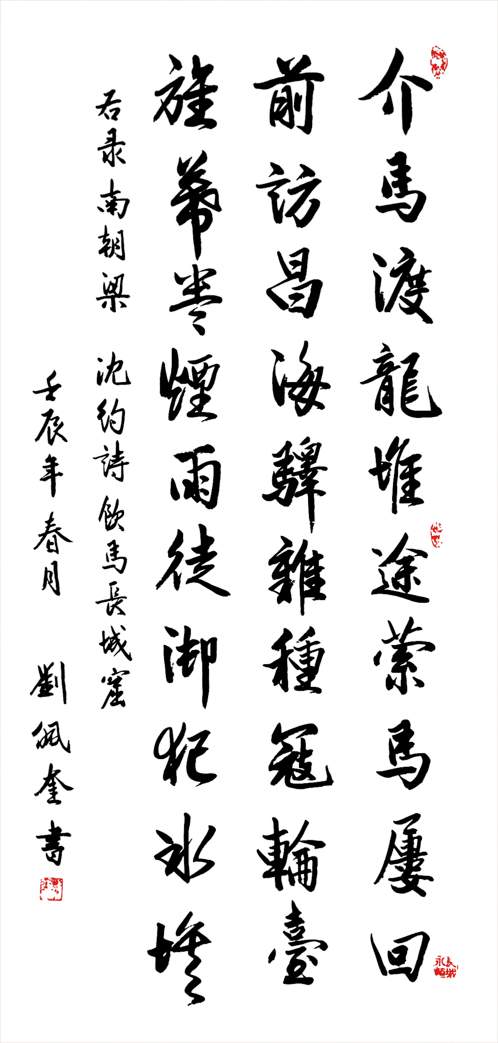 介馬渡龍堆途縈馬屢回
前訪昌海驛雜種寇輪臺
旌幕卷煙雨徒御犯冰埃
右录南朝梁 沈約詩飲馬長城窟
壬辰年春月 劉佩奎書